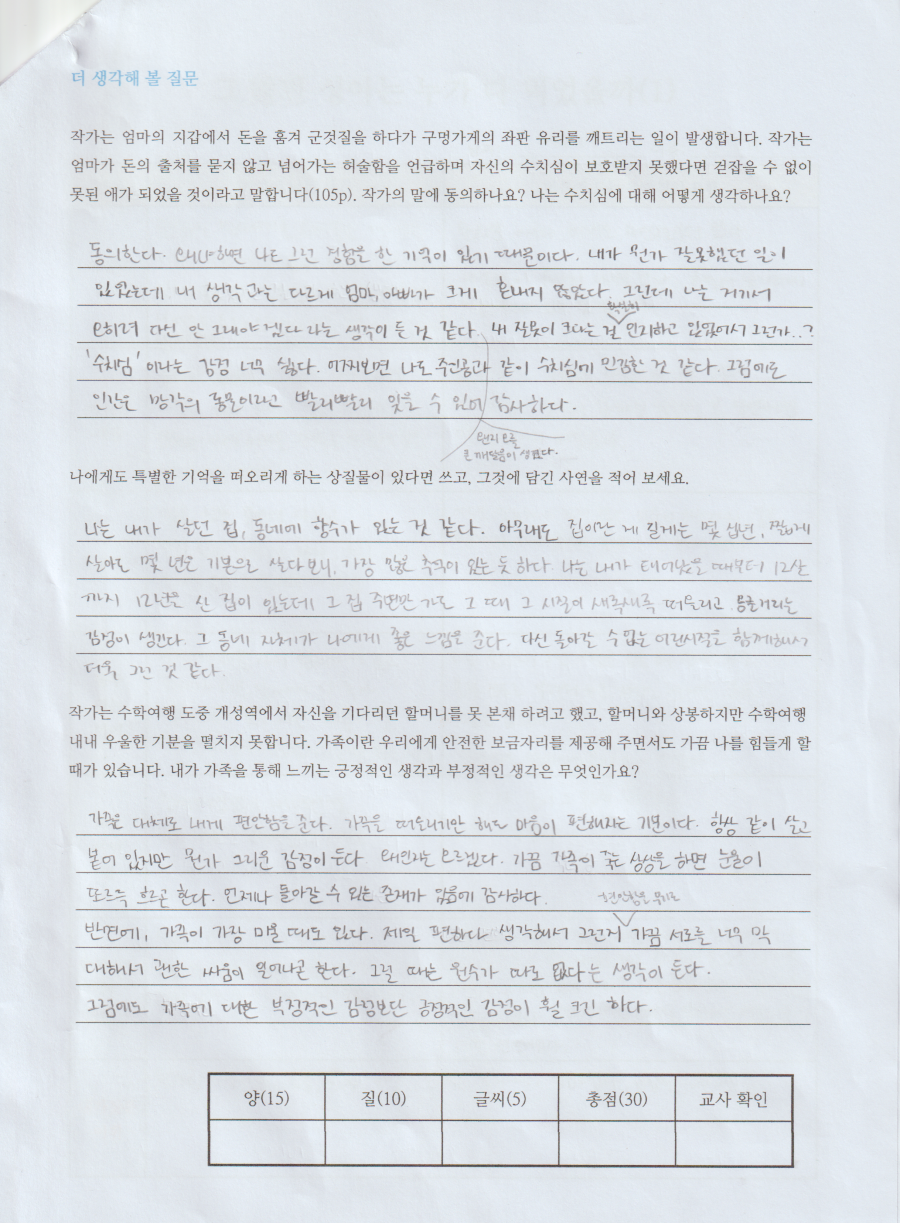 더 생각해 볼 질문
작가는 엄마의 지갑에서 돈을 훔겨 군것질을 하다가 구멍가게의 좌판 유리를 깨트리는 일이 발생합니다. 작가는
엄마가 돈의 출처를 묻지 않고 넘어가는 허술함을 언급하며 자신의 수치심이 보호받지 못했다면 걷잡을 수 없이
못된 애가 되었을 것이라고 말합니다(105p). 작가의 말에 동의하나요? 나는 수치심에 대해 어떻게 생각하나요?
동의한다. 왜냐하면 나도 그런 경험을 한 기억이 있기 때문이다. 내가 뭔가 잘못했던 일이
있었는데 내 생각과는 다르게 엄마, 아빠가 크게 혼내지 않았다. 그런데 나는 거기서
확실히
오히려 다신 안 그래야겠다 라는 생각이 든 것 같다. 내 잘못이 크다는 걸 인지하고 있었어서 그런가..?
'수치심' 이라는 감정 너무 싫다. 어찌보면 나도 주인공과 같이 수치심에 민감한 것 같다. 그럼에도
인간은 망각의 동물이라고 빨리빨리 잊을 수 있어 감사하다.
왠지 모를
큰 깨달음이 생겼다.
나에게도 특별한 기억을 떠오리게 하는 상질물이 있다면 쓰고, 그것에 담긴 사연을 적어 보세요.
나는 내가 살던 집, 동네에 향수가 있는 것 같다. 아무래도 집이란 게 길게는 몇 십년, 짧게
살아도 몇 년은 기본으로 살다보니, 가장 많은 추억이 있는 듯 하다. 나는 내가 태어났을 때부터 12살
까지 12년을 산 집이 있는데 그 집 주변만 가도 그 때 그 시절이 새록새록 떠올리고 몽글거리는
감정이 생긴다. 그 동네 자체가 나에게 좋은 느낌을 준다. 다신 돌아갈 수 없는 어린시절을 함께해서
더욱 그런 것 같다.
작가는 수학여행 도중 개성역에서 자신을 기다리던 할머니를 못 본채 하려고 했고, 할머니와 상봉하지만 수학여행
내내 우울한 기분을 떨치지 못합니다. 가족이란 우리에게 안전한 보금자리를 제공해 주면서도 가끔 나를 힘들게 할
때가 있습니다. 내가 가족을 통해 느끼는 긍정적인 생각과 부정적인 생각은 무엇인가요?
가족은 대체로 내게 편안함을 준다. 가족을 떠올리기만 해도 마음이 편해지는 기분이다. 항상 같이 살고
붙어 있지만 뭔가 그리운 감정이 든다. 왜인지는 모르겠다. 가끔 가족이 죽는 상상을 하면 눈물이
또르륵 흐르곤 한다. 언제나 돌아갈 수 있는 존재가 있음에 감사하다.
편안함을 무기로
반면에, 가족이 가장 미울 때도 있다. 제일 편하다 생각해서 그런지 가끔 서로를 너무 막
대해서 괜한 싸움이 일어나곤 한다. 그럴 때는 원수가 따로 없다는 생각이 든다.
그럼에도 가족에 대한 부정적인 감정보단 긍정적인 감정이 훨 크긴 하다.
양(15) 질(10) 글씨(5) 총점(30) 교사 확인